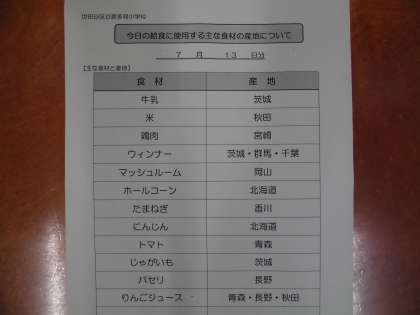 世田谷区立喜多見小学校
今日の給食に使用する主な食材の産地について
7 月 13 日分
【主な食材と産地】
食 材 産 地
牛乳 茨城
米 秋田
鶏肉 宮崎
ウィンナー 茨城・群馬・千葉
マッシュルーム 岡山
ホールコーン 北海道
たまねぎ 香川
にんじん 北海道
トマト 青森
じゃがいも 茨城
パセリ 長野
りんごジュース 青森・長野・秋田